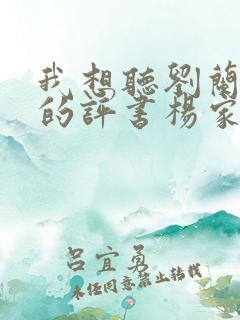 我想聽劉蘭
的評書楊家
呂宜勇
未經同意禁止轉載